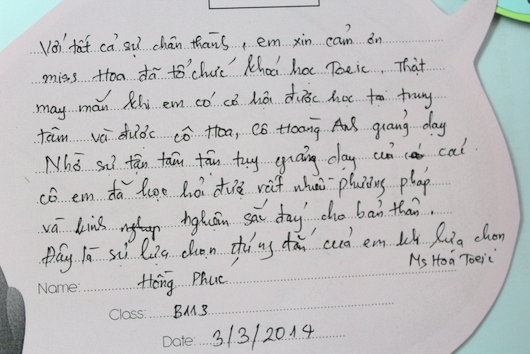 Với tất cả sự chân thành, em xin cảm ơn
miss Hoa đã tổ chức khoá học Toeic. Thật
may mắn khi em có cơ hội được học tại trung
tâm và được cô Hoa, cô Hoàng Anh giảng dạy
Nhờ sự tận tâm tận tụy giảng dạy của các
cô em đã học hỏi được rất nhiều phương pháp
và kinh nghiệm cho bản thân.
Đây là sự lựa chọn đúng đắn của em khi lựa chọn
Ms Hoa Toeic
Name: Hồng Phúc
Class: B113
Date: 3/3/2014